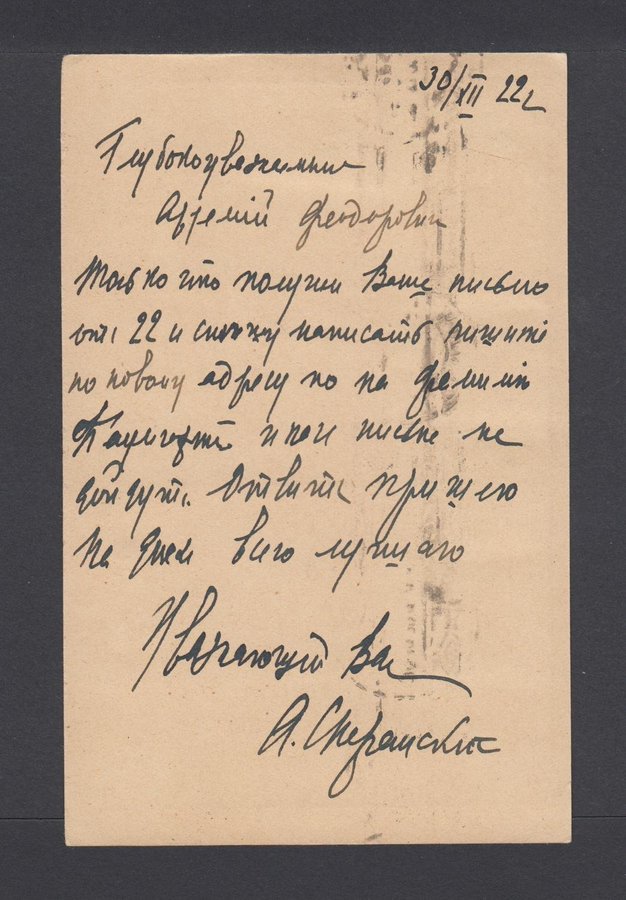 30/XII 22 г
Глубокоуважаемый
Артемій Феодорович
Только что получил Ваше письмо
отъ 22 и спешу написать пишите
по новому адресу но на фамилію
иначе письма не
дойдут. Ответъ пришлю
на днях всего лучшаго
Уважающий Вас
А. Сперанский